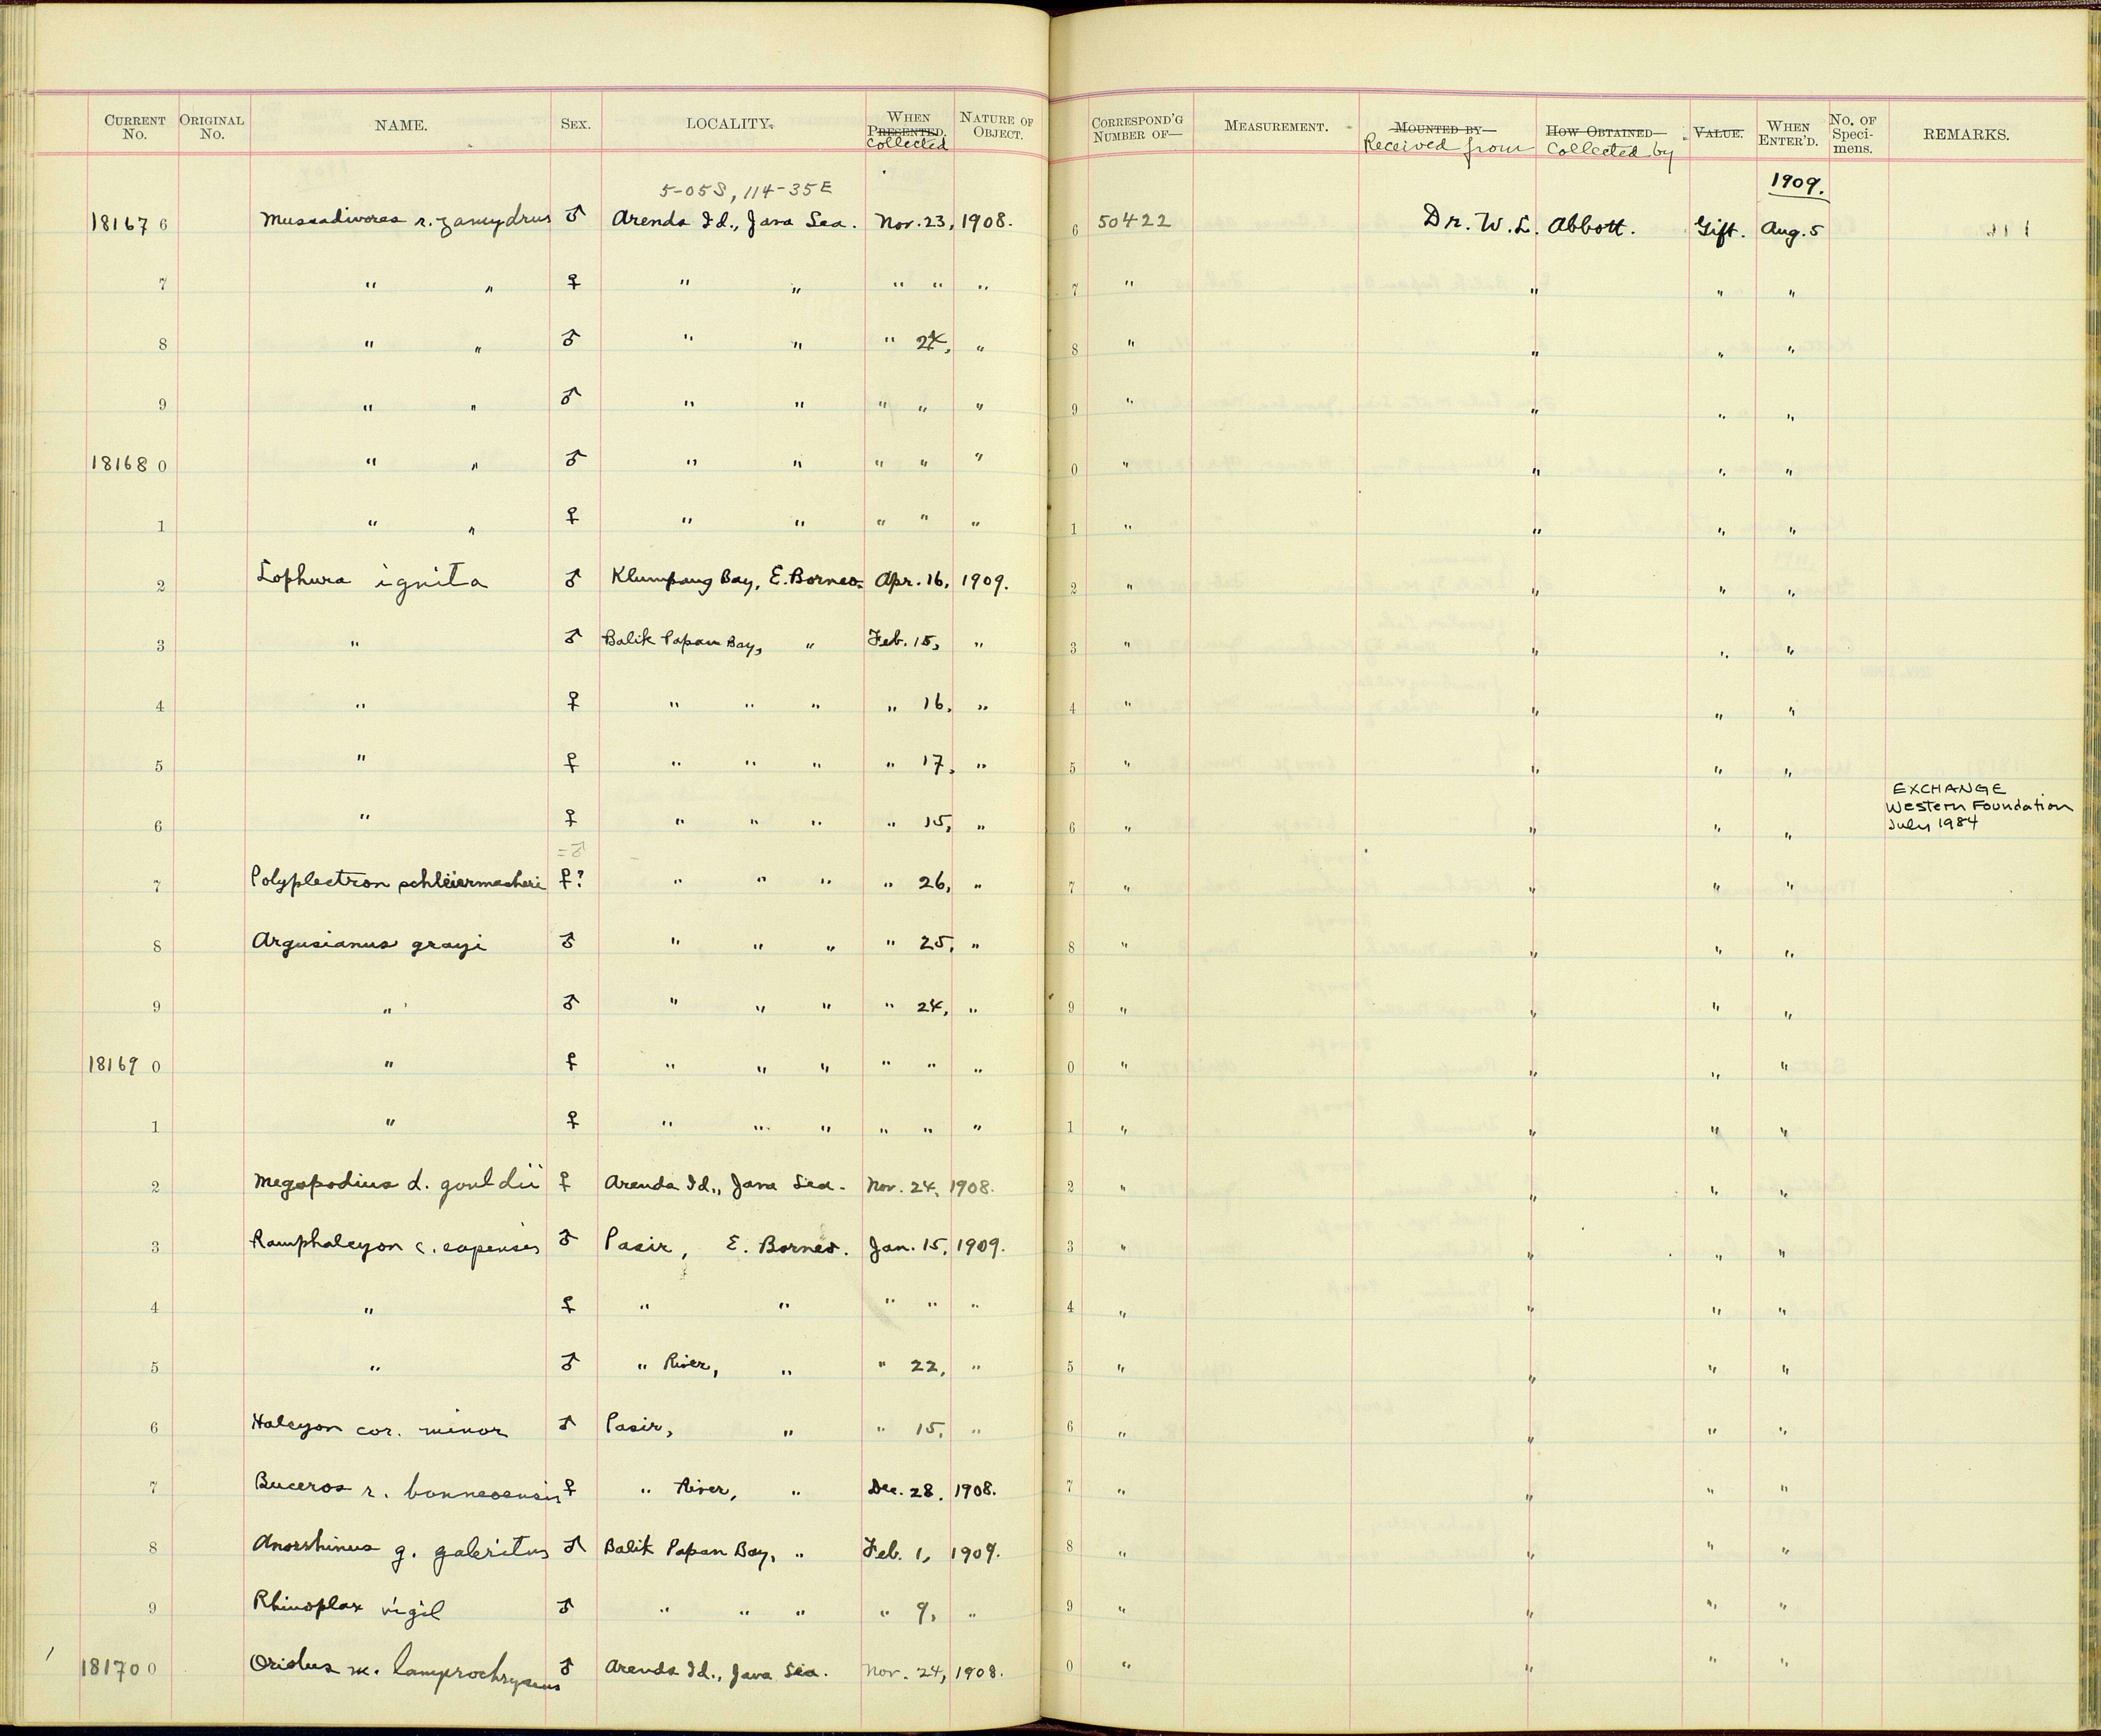 CURRENT No. ORIGINAL No. NAME. SEX. LOCALITY. WHEN PRESENTED. Collected NATURE OF OBJECT. CORRESPOND'G NUMBER OF— MEASUREMENT. MOUNTED BY— Received from HOW OBTAINED— Collected by VALUE. WHEN ENTER'D. No. OF Specimens. REMARKS.
5-05S, 114-35E 1909.
18167 6 Mussadivores r. zamydrus ♂ Arends Id., Java Sea. Nov. 23, 1908. 6 50422 Dr. W. L. Abbott. Gift. Aug. 5
7 " " ♀ " " " " " 7 " " " "
8 " " ♂ " " " 24, " 8 " " " "
9 " " ♂ " " " " " 9 " " " "
18168 0 " " ♂ " " " " " 0 " " " "
1 " " ♀ " " " " " 1 " " " "
2 Lophura ignita ♂ Klumpang Bay, E. Borneo. Apr. 16, 1909. 2 " " " "
3 " ♂ Balik Papan Bay, " Feb. 15, " 3 " " " "
4 " ♀ " " " " 16, " 4 " " " "
5 " ♀ " " " " 17, " 5 " " " "
6 " ♀ " " " " 15, " 6 " " " " EXCHANGE
Western Foundation
July 1984
=♂
7 Polyplectron schleiermacheri ♀? " " " " 26, " 7 " " " "
8 Argusianus grayi ♂ " " " " 25, " 8 " " " "
9 " ♂ " " " " 24, " 9 " " " "
18169 0 " ♀ " " " " " " 0 " " " "
1 " ♀ " " " " " " 1 " " " "
2 Megapodius d. gouldii ♀ Arends Id., Java Sea. Nov. 24, 1908. 2 " " " "
3 Ramphalcyon c. capensis ♂ Pasir, E. Borneo. Jan. 15, 1909. 3 " " " "
4 " ♀ " " " " " 4 " " " "
5 " ♂ " River, " " 22, " 5 " " " "
6 Halcyon cor. minor ♂ Pasir, " " 15, " 6 " " " "
7 Buceros r. borneoensis ♀ " River, " Dec. 28, 1908. 7 " " " "
8 Anorrhinus g. galeritus ♂ Balik Papan Bay, " Feb. 1, 1909. 8 " " " "
9 Rhinoplax vigil ♂ " " " " 9, " 9 " " " "
18170 0 Oriolus m. lamprochryseus ♂ Arends Id., Java Sea. Nov. 24, 1908. 0 " " " "